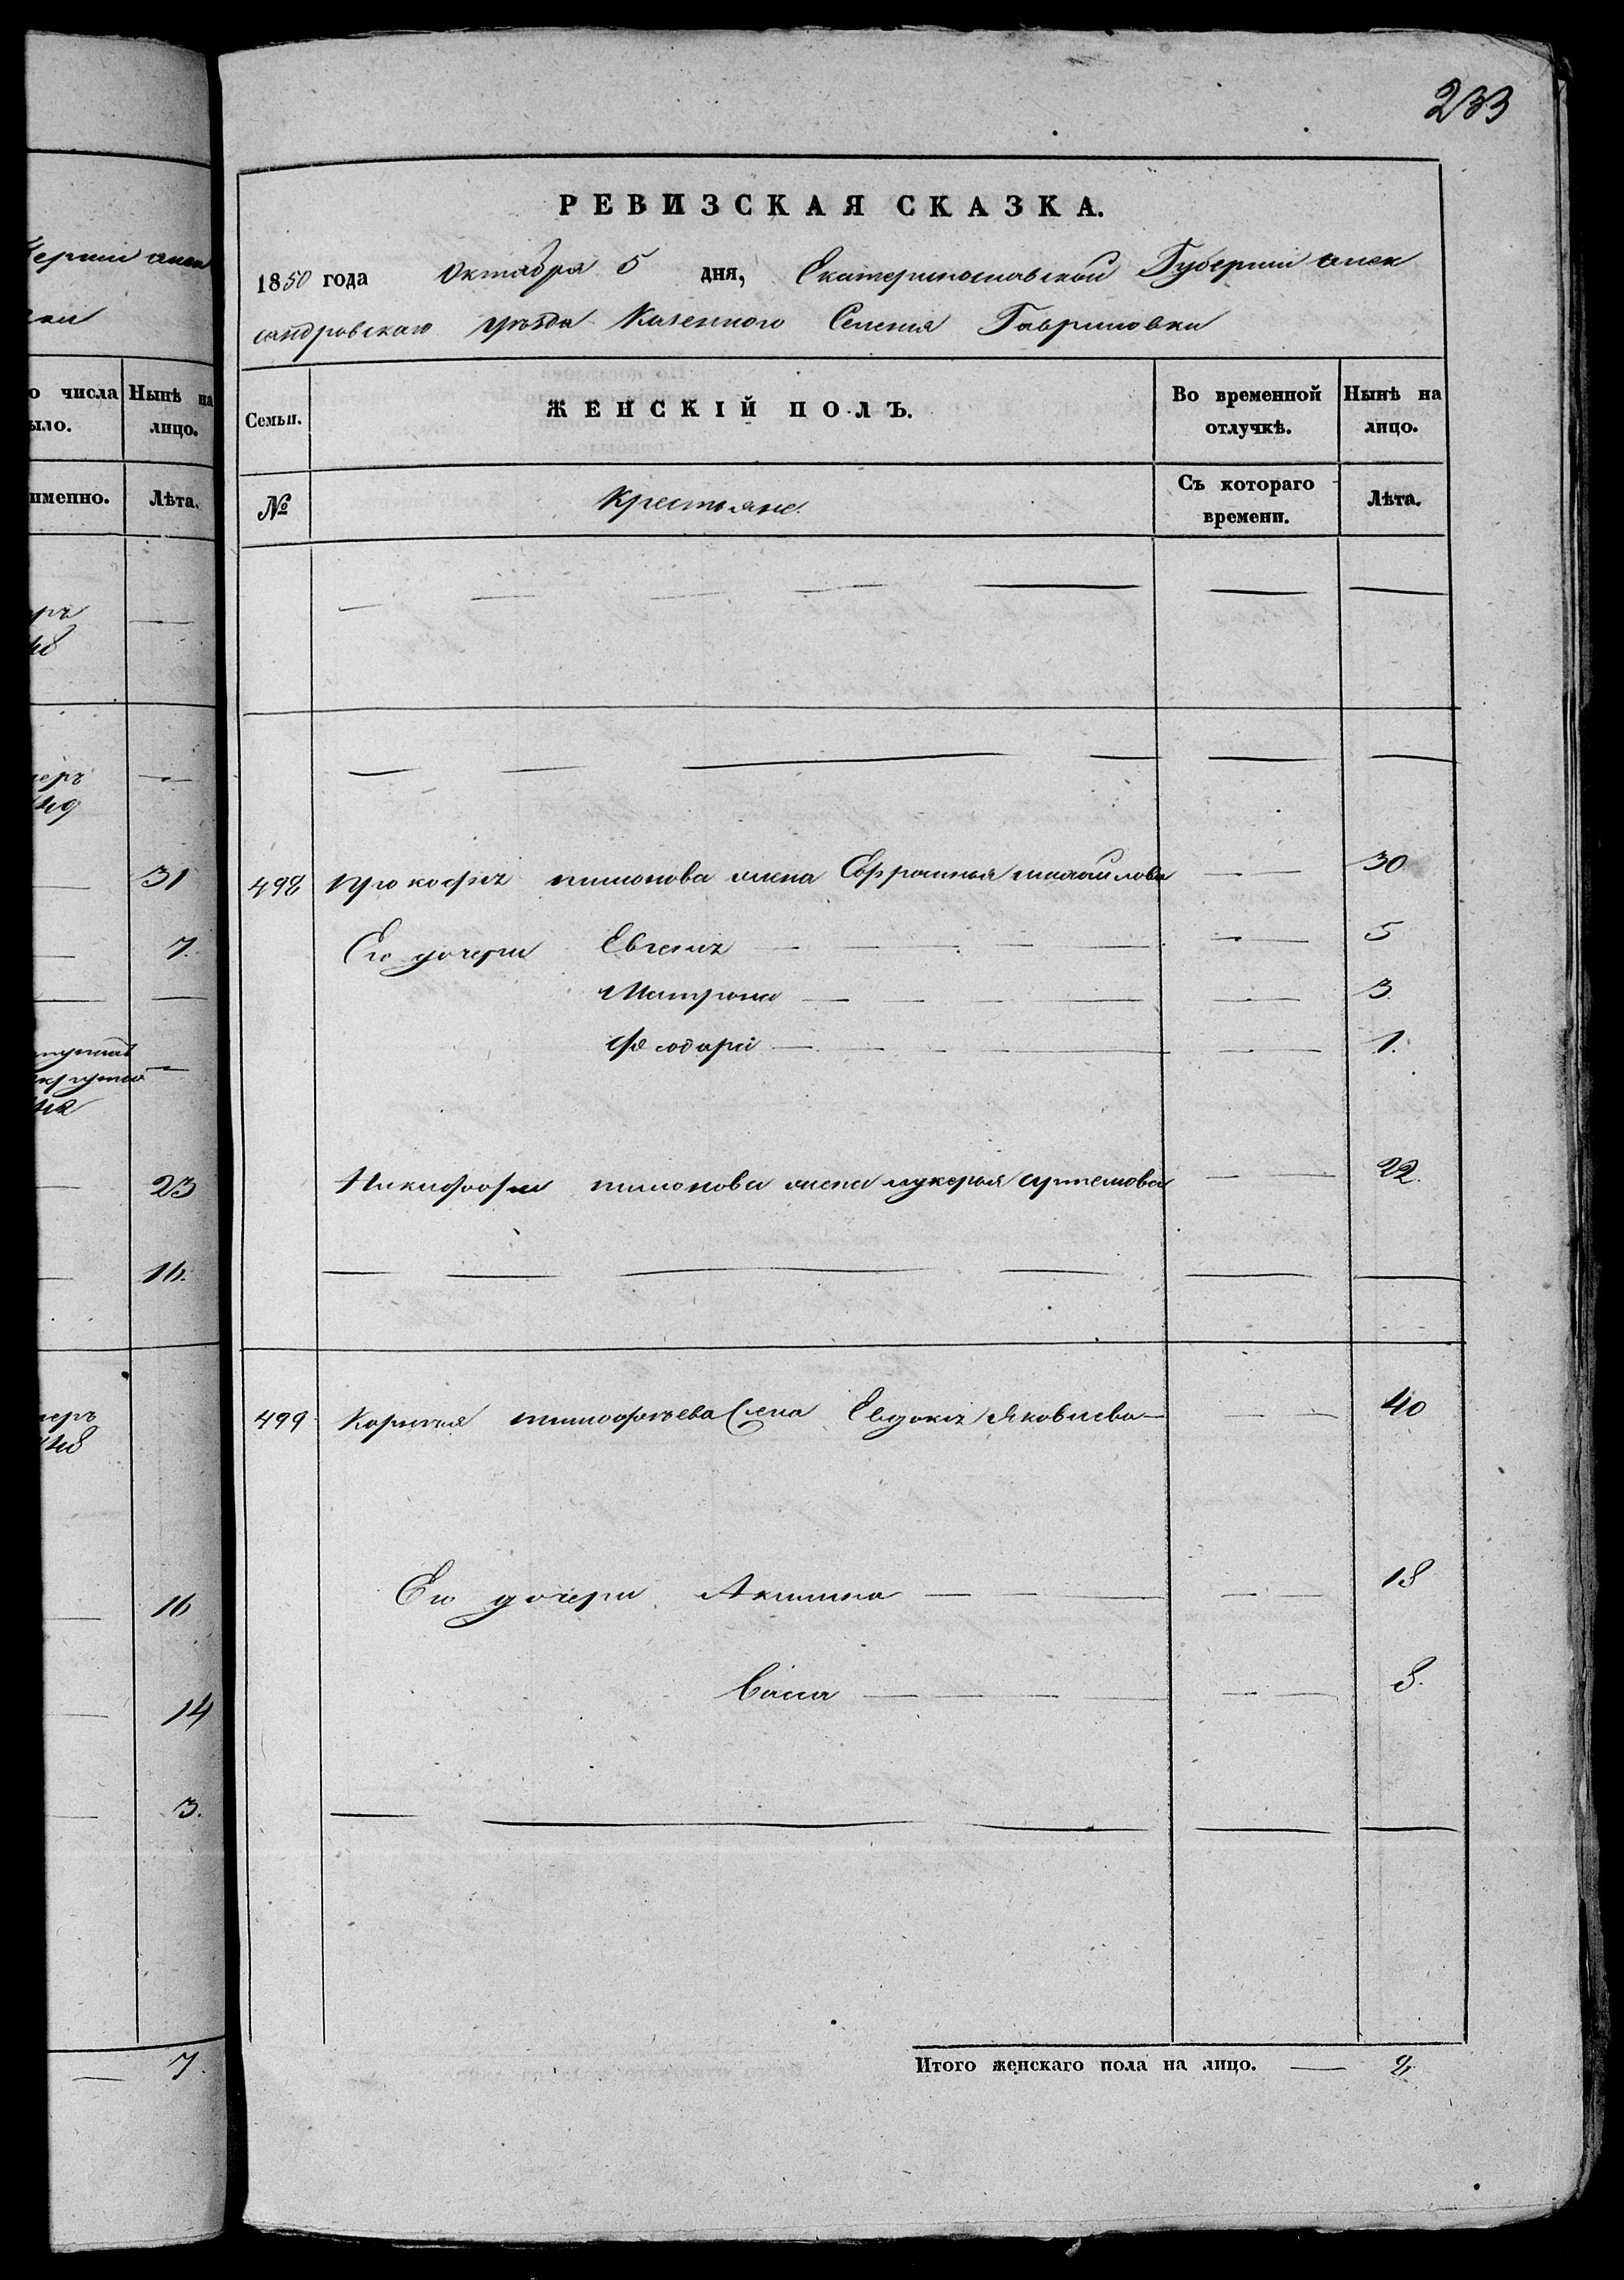 233
РЕВИЗСКАЯ СКАЗКА.
1850 года Октября 5 дня, Екатеринославской Губерніи алек
сандровскаго уѣзда Казенного Селенія Гавриловки
Семьи. ЖЕНСКІЙ ПОЛЪ. Во временной отлучкѣ. Нынѣ на лицо.
№ Крестьяне. Съ котораго времени. Лѣта.
498 Прокофія тимонова жена Ефросинья михайлова 30
Его дочери Евгенія 5
Матрона 3
Феодора 1.
Никифора тимонова жена лукерья артемова 22.
499 Корнея тимофѣева жена Евдокія Яковлева 40
Его дочери Акилина 18
Васса 8.
Итого женскаго пола на лицо. 8
о числа
ыло.
Нынѣ на
лицо.
именно.
Лѣта.
31
7.
23
16.
16
14
3.
7.